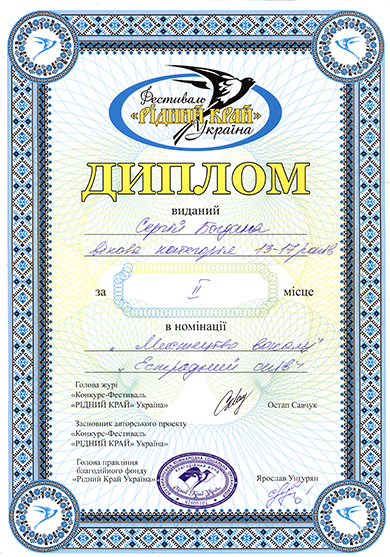 Фестиваль
«РІДНИЙ КРАЙ»
Україна
ДИПЛОМ
виданий
Сергій Богдана
вікова категорія 13-17 років
за II місце
в номінації
„Мистецтво вокалу"
„Естрадний спів"
Голова журі
«Конкурс-Фестиваль
«РІДНИЙ КРАЙ» Україна»
Остап Савчук
Засновник авторського проекту
«Конкурс-Фестиваль
«РІДНИЙ КРАЙ» Україна»
Голова правління
благодійного фонду
«Рідний Край Україна»
Ярослав Унгурян